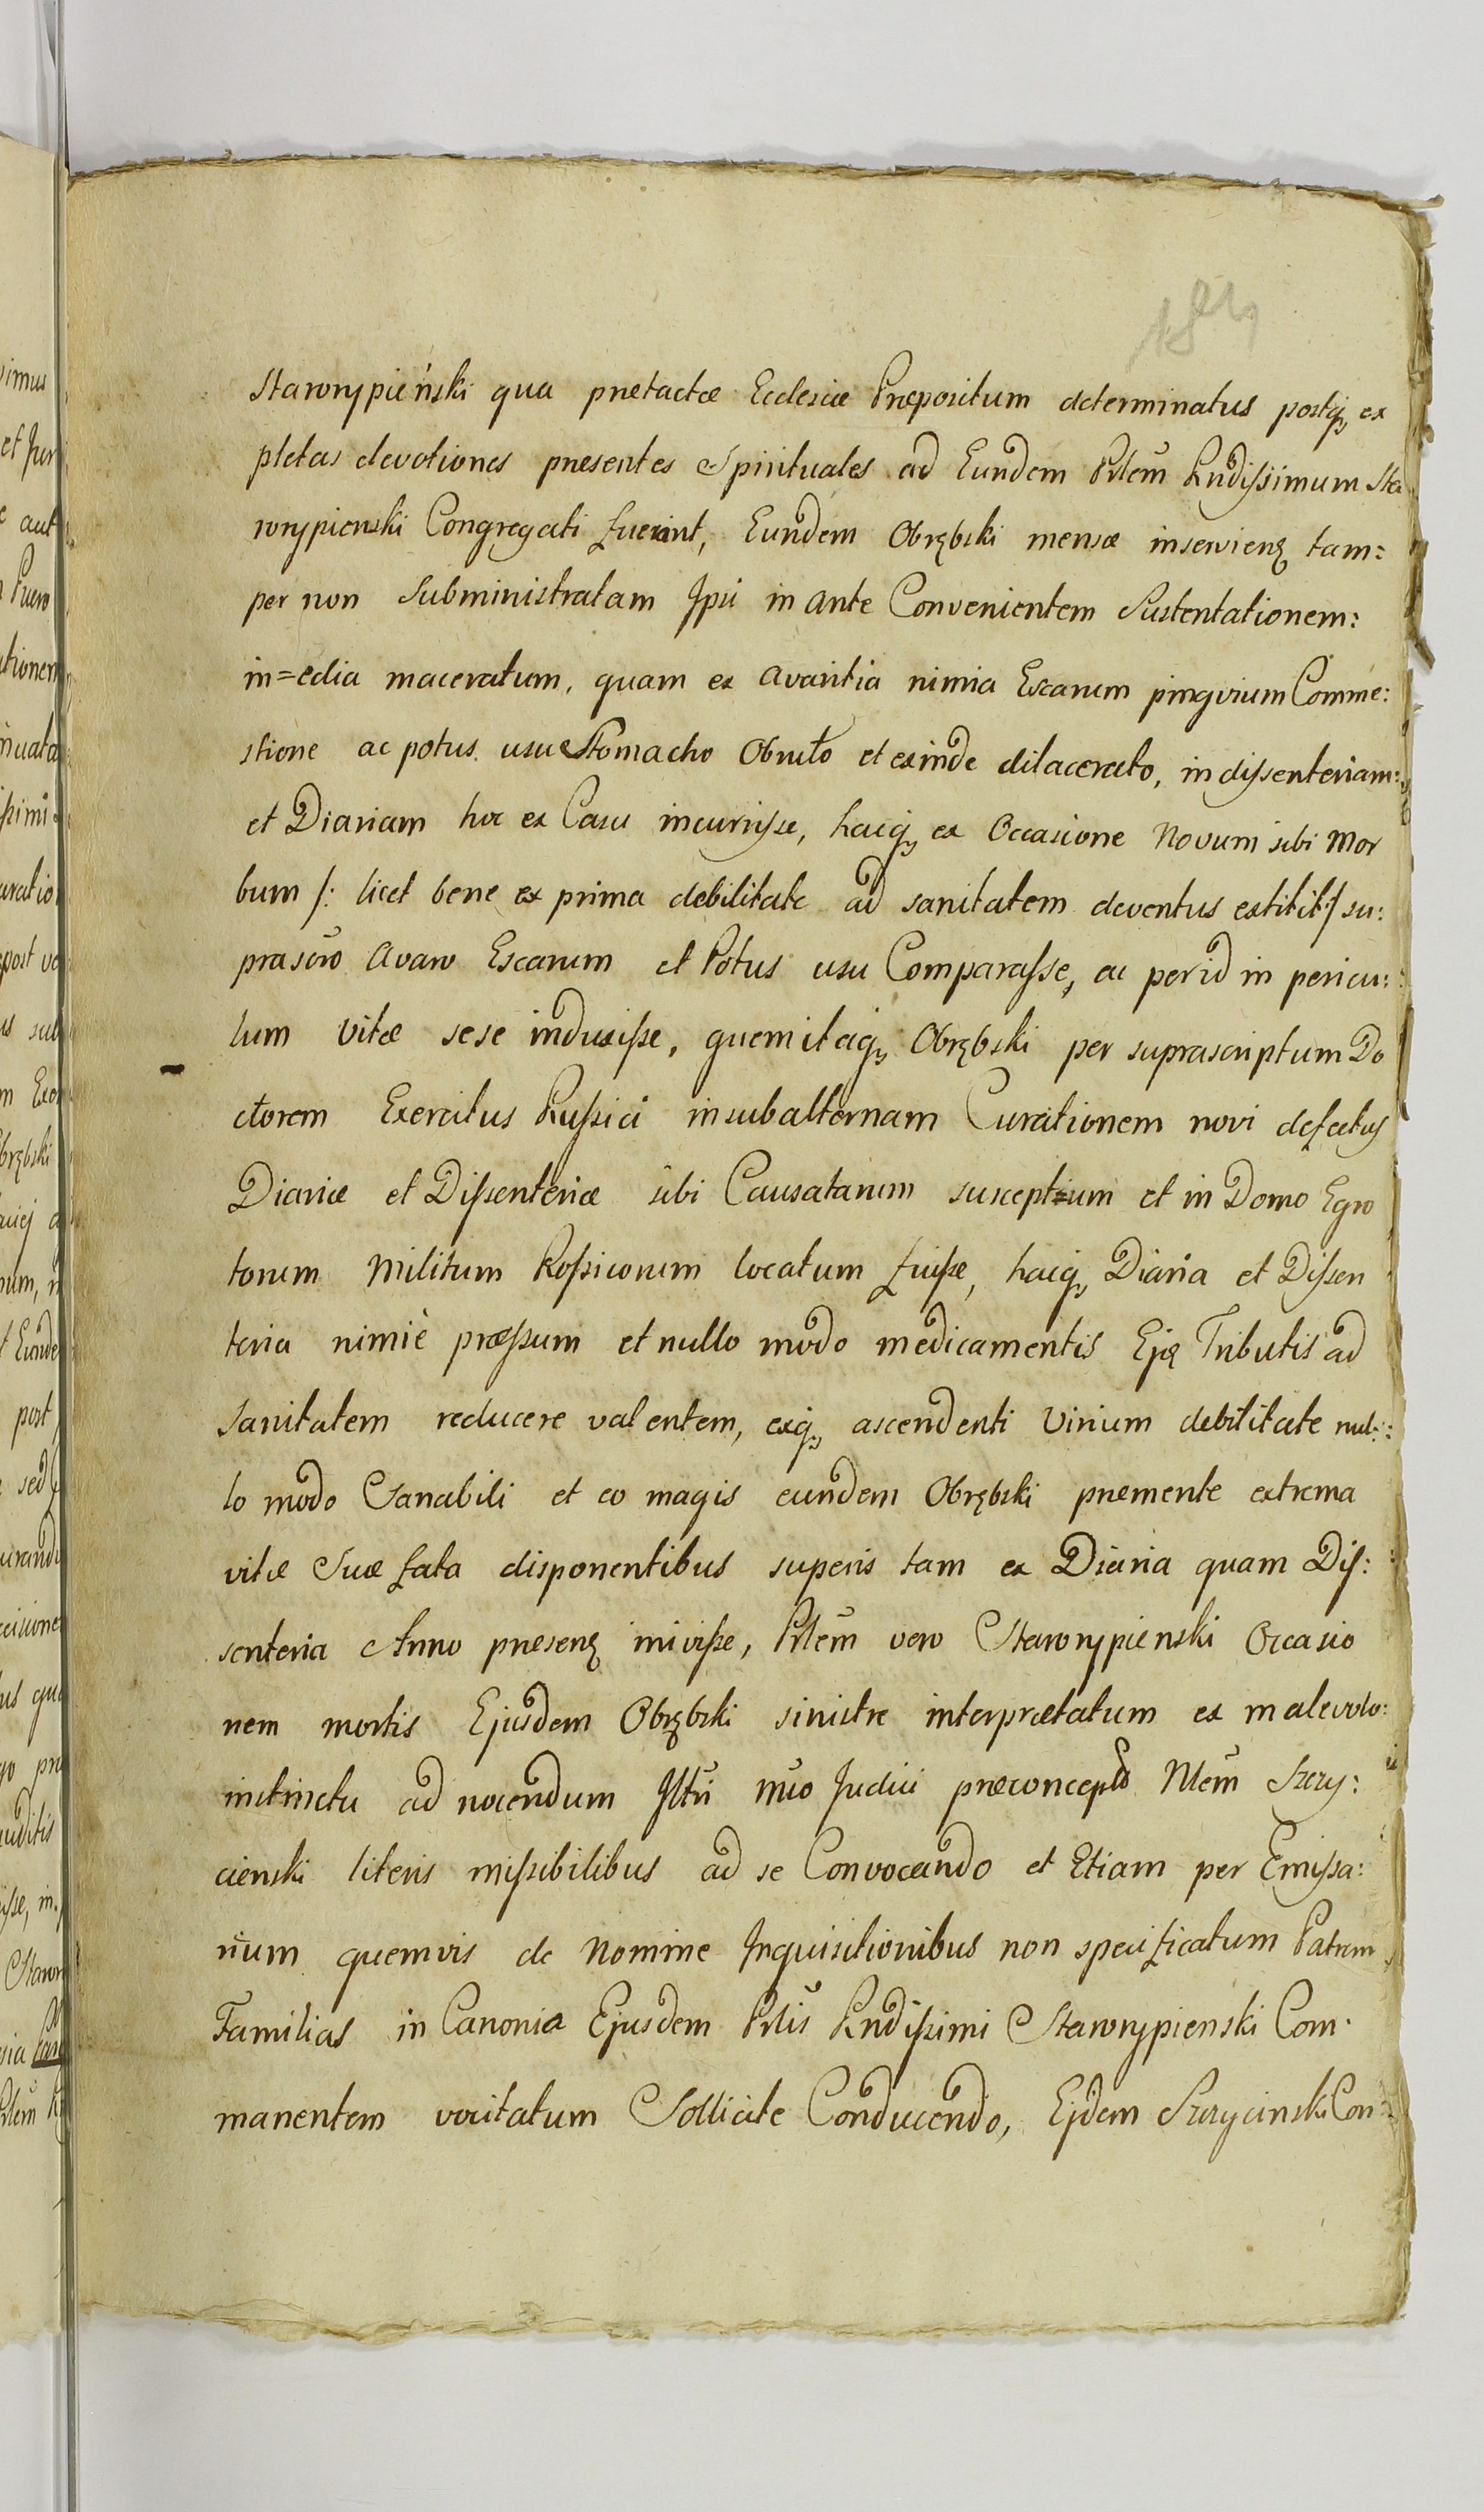 Starorypieński qua prætactæ Ecclesiæ Præpositum determinatus postq, ex
pletas devotiones presentes Spirituales ad Eundem Prlem Rndissimum Sta
rorypienski Congregati fuerint, Eundem Obrębski mensæ inserviens tam:
per non Subministratam Ipsi in ante Convenientem Sustentationem:
in=edia maceratum, quam ex avaritia nimia Escarum pingvium Comme:
stione ac potus usu Stomacho Obruto et exinde dilacerato, in dissenteriam:
et Diariam hoc ex Casu incurrisse, hacq, ex Occasione Novum sibi Mor
bum /: licet bene ex prima debilitate ad sanitatem deventus extitit :/ su:
prascro Avaro Escarum et Potus usu Comparasse, ac per id in pericu:
lum vitæ sese induxisse, quem itaq, Obrębski per suprascriptum Do
ctorem Exercitus Russici in subalternam Curationem novi defectus
Diariæ et Dissenteriæ sibi Causatarum susceptum et in Domo Egro
torum Militum Rossicorum locatum fuisse, hacq, Diaria et Dissen
teria nimie præssum et nullo modo medicamentis Ejq Tributis ad
Sanitatem reducere valentem, exq, ascendenti Virium debilitate nul:
lo modo Sanabili et eo magis eundem Obrębski premente extrema
vitæ Suæ fata disponentibus superis tam ex Diaria quam Dis:
senteria Anno presens inivisse, Prlem vero Starorypienski Occasio
nem mortis Ejusdem Obrębski sinistre interprætatum ex malevolo:
instinctu ad nocendum Istri nro Judici præconcepto Nlem Szczy:
cienski literis missibilibus ad se Convocando et Etiam per Emissa:
rium quemvis de Nomine Inquisitionibus non specificatum Patrem
Familias in Canonia Ejusdem Prlis Rndissimi Starorypienski Com
manentem vocitatum Sollicite Conducendo, Ejdem Szczycinski Con